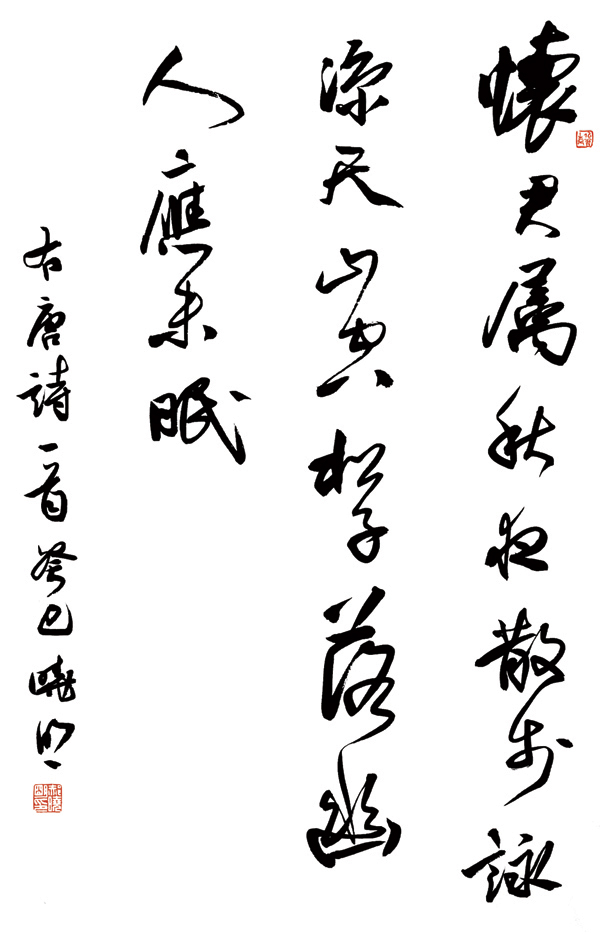 懷君属秋夜散步詠
涼天山空松子落幽
人應未眠
右唐詩一首癸巳曉明